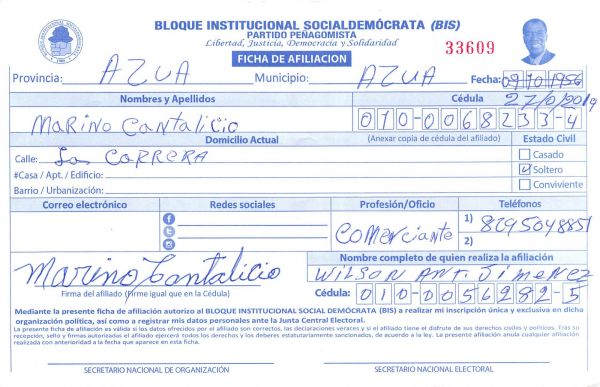 BLOQUE INSTITUCIONAL SOCIALDEMÓCRATA (BIS)
PARTIDO PEÑAGOMISTA
Libertad, Justicia, Democracia y Solidaridad
33609
FICHA DE AFILIACION
Provincia: AZUA Municipio: AZUA Fecha: 09/10/1956
Nombres y Apellidos Cédula 27/0/2019
MARINO CANTALICIO 010-0068233-4
Domicilio Actual (Anexar copia de cédula del afiliado) Estado Civil
Calle: La CARRERA Casado
#Casa / Apt. / Edificio: Soltero
Barrio / Urbanización: Conviviente
Correo electrónico Redes sociales Profesión/Oficio Teléfonos
COMERCIANTE 1) 8295048851
2)
Marino Cantalicio
Nombre completo de quien realiza la afiliación
WILSON ANT. JIMENEZ
Firma del afiliado (Firme igual que en la Cédula) Cédula: 010-0056282-5
Mediante la presente ficha de afiliación autorizo al BLOQUE INSTITUCIONAL SOCIAL DEMÓCRATA (BIS) a realizar mi inscripción única y exclusiva en dicha
organización política, así como a registrar mis datos personales ante la Junta Central Electoral.
La presente ficha de afiliación es válida si los datos ofrecidos por el afiliado son correctos, las declaraciones veraces y si el afiliado tiene el disfrute de sus derechos civiles y políticos. Tras su
recepción, sello y firmas autorizadas el afiliado ejercerá todos los derechos y los deberes estatutariamente sancionados, de acuerdo a la ley. La presente afiliación anula cualquier afiliación
realizada con anterioridad a la fecha que aparece en esta ficha.
SECRETARIO NACIONAL DE ORGANIZACIÓN SECRETARIO NACIONAL ELECTORAL